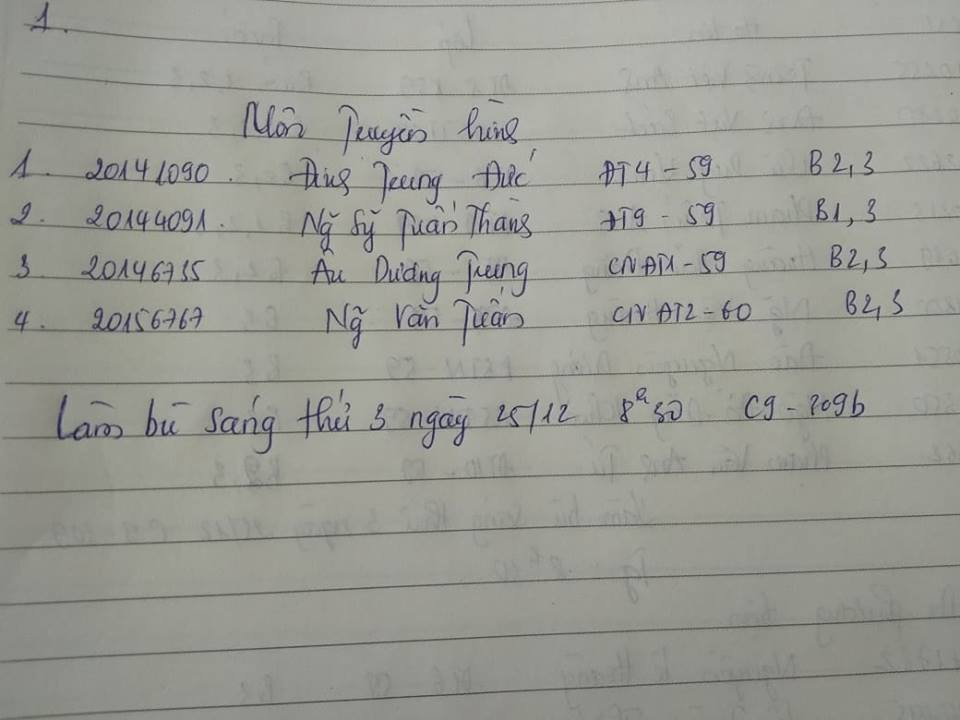 1.
Môn Truyền hình
1. 20141090. Đinh Trung Đức ĐT4-59 B2,3
2. 20144091. Ng̃ Sỹ Tuấn Thành ĐT9-59 B1,3
3 20146715 Âu Dương Trung CNĐT1-59 B2,3
4. 20156767 Ng̃ Văn Tuấn CNĐT2-60 B2,3
Làm bù sáng thứ 3 ngày 25/12 8h30 C9-209b